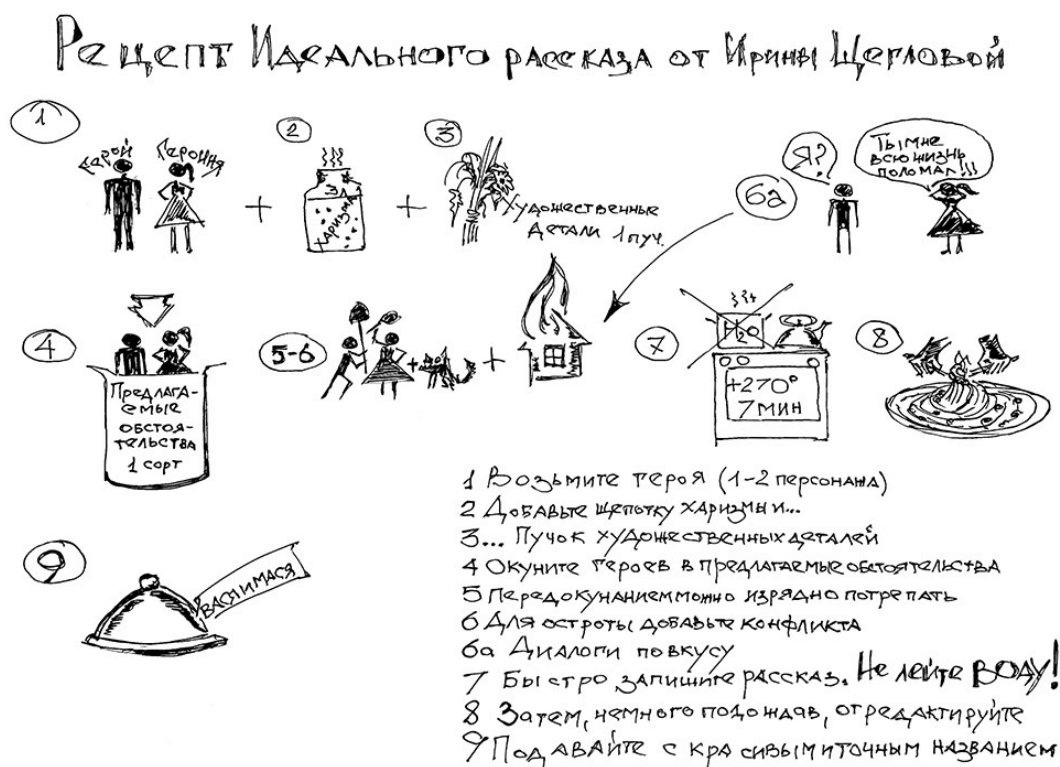 Рецепт Идеального рассказа от Ирины Щегловой
1
Герой
Героиня
+
2
Харизма
+
3
Художественные
детали 1 пуч.
6а
Я?
Ты мне
всю жизнь
поломал!!!
4
Предлага-
емые
обстоя-
тельства
1 сорт
5-6
+
+
7
H2O
+270°
7 мин
8
9
Вася и Мася
1 Возьмите героя (1-2 персонажа)
2 Добавьте щепотку харизмы и...
3... Пучок художественных деталей
4 Окуните героев в предлагаемые обстоятельства
5 Перед окунанием можно изрядно потрепать
6 Для остроты добавьте конфликта
6а Диалоги по вкусу
7 Быстро запишите рассказ. Не лейте ВОДУ!
8 Затем, немного подождав, отредактируйте
9 Подавайте с красивым и точным названием